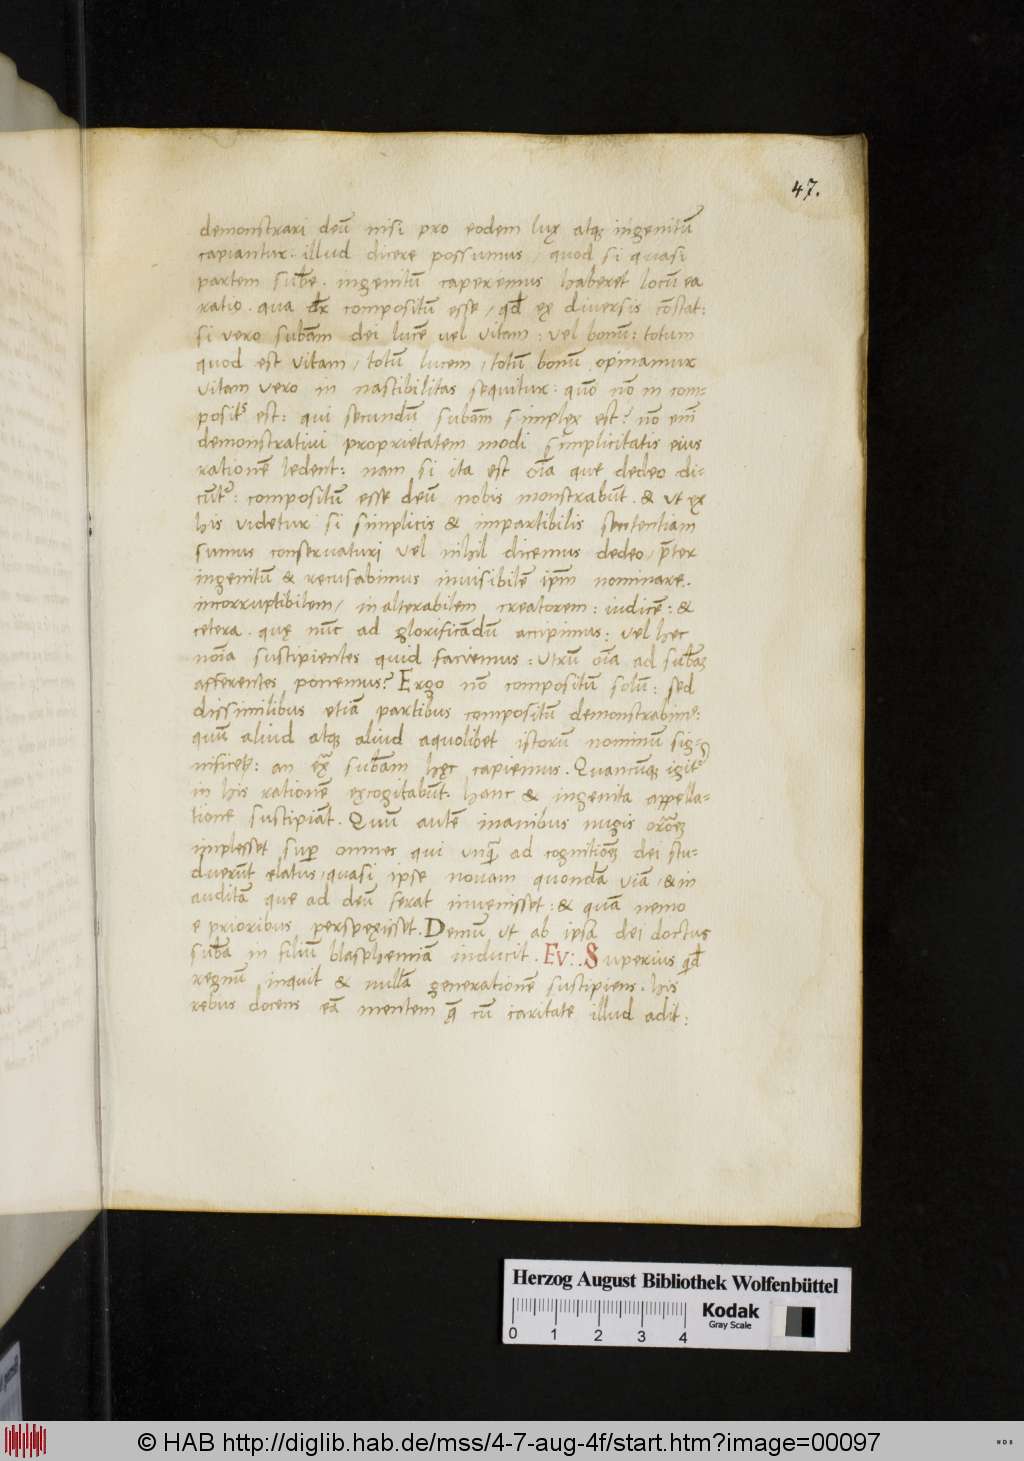 47.
demonstrari deū nisi pro eodem lux atq; ingenitū
capiantur. illud dicere possumus / quod si quasi
partem subē. ingenitū caperemus haberet locū ea
ratio. qua dr̄ compositū esse / qd̄ ex diversis cōstat:
si vero subām dei lucē vel vitam: vel bonū: totum
quod est vitam / totū lucem / totū bonū opinamur
vitam vero in nascibilitas sequitur. quō nō in com-
posit9 est: qui secundū subām simplex est? nō em̄
demonstrativi proprietatem modi simplicitatis eius
rationē ledent: nam si ita est oīa que dedeo di-
cūt': compositū esse deū nobis monstrabūt. & ut ex
his videtur si simplicis & impartibilis sententiam
sumus conservaturi vel nihil dicemus dedeo / p̄ter
ingenitū & recusabimus invisibilē ip̄m nominare.
incorruptibilem / inalterabilem creatorem: iudicē: &
cetera. quę nūc ad glorificādū accipimus: vel hec
noīa suscipientes quid faciemus: Utrū oīa ad subāz
afferentes ponemus? Ergo nō compositū solū: sed
dissimilibus etiā partibus compositū demonstrabim9:
quū aliud atq; aliud aquolibet istorū nominū sig-
nificet: an ex̄ subām hęc capiemus. Quancūq; igit'
in his rationē excogitabūt: hanc & ingenita appella-
tione suscipiāt. Quū autē inanibus nugis
implesset sup omnes qui unq̄ ad cognitiōez dei stu-
duerūt elatus / quasi ipse novam quondā viā / & in
auditā que ad deū ferat invenisset: & quā nemo
e prioribus perspexisset. Demū ut ab ipsa dei doctus
subā in filiū blasphemiā inducit. EV: Superius qd̄
regnū inquit & nullā generationē suscipiens. his
rebus docens eā mentem q̄ cū caritate illud adit:
Herzog August Bibliothek Wolfenbüttel
0 1 2 3 4
Kodak
Gray Scale
© HAB http://diglib.hab.de/mss/4-7-aug-4f/start.htm?image=00097